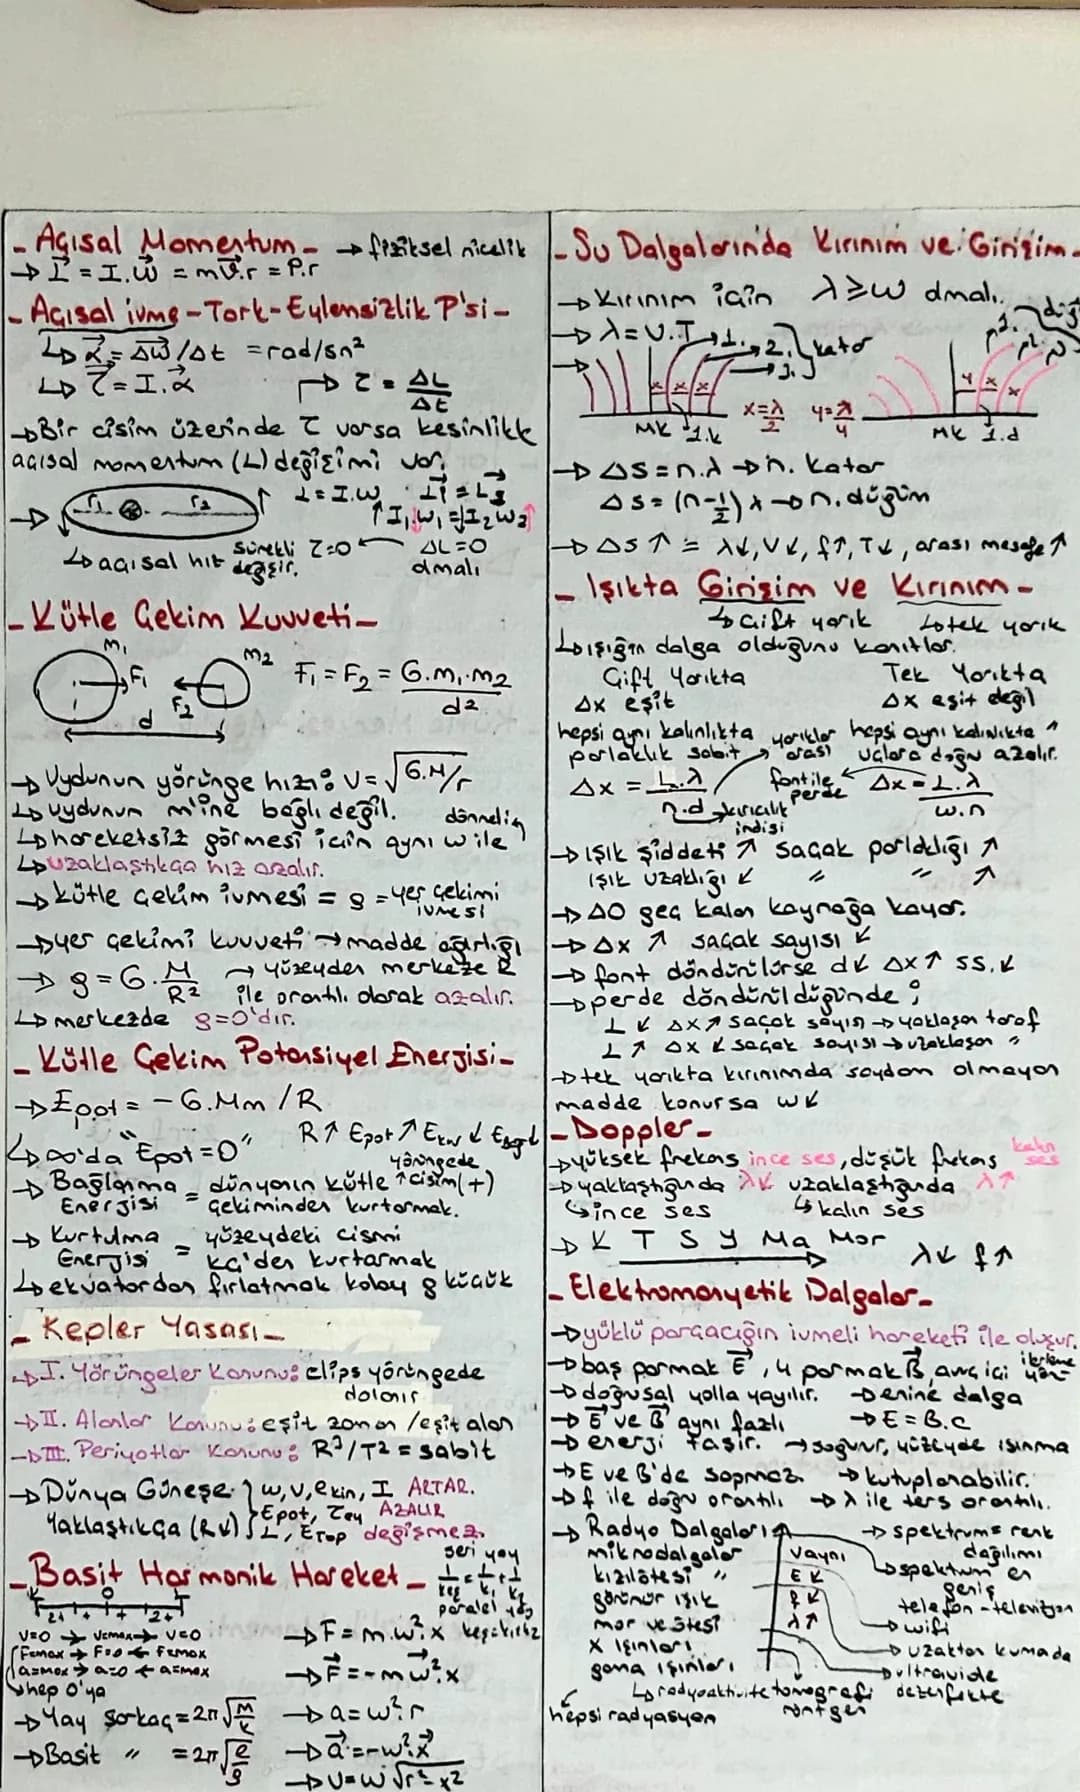 - Açısal Momentum - → fiziksel nicelik
→ L = I.w = mV.r = P.r
- Açısal ivme - Tork - Eylemsizlik P'si -
↳ α = Δw/Δt = rad/sn²
↳ τ = I.α → τ = ΔL/Δt
→ Bir cisim üzerinde τ varsa kesinlikle
açısal momentum (L) değişimi var.
→ r₁ r₂ L = I.w . Lİ = Ls
↑I₁.w₁ = I₂w₂↑
↳ açısal hız sürekli değişir. τ=0 ← ΔL=0 olmalı
- Kütle Çekim Kuvveti -
m₁ F₁ F₂ m₂ d F₁ = F₂ = G.m₁.m₂/d²
→ Uydunun yörünge hızı: V = √G.M/r
↳ uydunun m'ine bağlı değil.
↳ hareketsiz görmesi için aynı w ile dönmeli
↳ uzaklaştıkça hız azalır.
→ kütle çekim ivmesi = g = yer çekimi ivmesi
→ yer çekimi kuvveti → madde ağırlığı
→ g = G.M/R² → yüzeyden merkeze R
ile orantılı olarak azalır.
↳ merkezde g=0'dır.
- Kütle Çekim Potansiyel Enerjisi -
→ Epot = -G.Mm/R
R↑ Epot↑ Ekin↓
↳ ∞'da "Epot=0" yörüngede cisim(+)
→ Bağlanma Enerjisi = dünyanın kütle çekiminden kurtarmak.
→ Kurtulma Enerjisi = yüzeydeki cismi kç'den kurtarmak
↳ ekvatordan fırlatmak kolay g küçük
- Kepler Yasası -
→ I. Yörüngeler Kanunu: elips yörüngede dolanır
→ II. Alanlar Kanunu: eşit zaman/eşit alan
→ III. Periyotlar Kanunu: R³/T² = sabit
→ Dünya Güneşe Yaklaştıkça (R↓) } w, v, ekin, I ARTAR.
Epot, AZALIR
L, Etop değişmez.
- Basit Harmonik Hareket -
seri yay
1/keş = 1/k₁ + 1/k₂
paralel yay
keş = k₁+k₂
V=0 → Vmax → V=0
Fmax → F=0 ← Fmax
a=max → a=0 ← a=max
↳ hep 0'ya
→ F = m.w².x
→ F = -mw².x
→ Yay Sarkaç = 2π√m/k
→ a = w².r
→ Basit " = 2π√ℓ/g
→ a = -w².x
→ V = w√r²-x²
- Su Dalgalarında Kırınım ve Girişim -
→ Kırınım için λ≥w olmalı.
→ λ = V.T → 1. 2. 3. } katar
x=λ/2 y=λ/4
MK 1.k MK 1.d
→ ΔS = n.λ → n. katar
ΔS = (n-1/2)λ → n. düğüm
→ ΔS↑ = λ↓, V↓, f↑, T↓, arası mesafe↑
- Işıkta Girişim ve Kırınım -
↳ Çift yarık ↳ tek yarık
↳ ışığın dalga olduğunu kanıtlar.
Çift Yarıkta Tek Yarıkta
Δx eşit Δx eşit değil
hepsi aynı kalınlıkta hepsi aynı kalınlıkta
parlaklık sabit uçlara doğru azalır.
yarıklar arası
Δx = L.λ/n.d → kırıcılık indisi
fantile perde
Δx = L.λ/w.n
→ Işık şiddeti ↑ saçak parlaklığı ↑
Işık uzaklığı ↓ " " ↑
→ AO geç kalan kaynağa kayar.
→ Δx ↑ saçak sayısı ↓
→ fant döndürülürse d↓ Δx↑ ss.↓
→ perde döndürüldüğünde;
L↓ Δx↑ saçak sayısı → yaklaşan taraf
L↑ Δx↓ saçak sayısı → uzaklaşan "
→ tek yarıkta kırınımda saydam olmayan
madde konursa w↓
- Doppler -
→ yüksek frekans ince ses, düşük frekans kalın ses
→ yaklaştığında λ↓ uzaklaştığında λ↑
↳ ince ses ↳ kalın ses
→ K T S Y Ma Mor λ↓ f↑
- Elektromanyetik Dalgalar -
→ yüklü parçacığın ivmeli hareketi ile oluşur.
→ baş parmak E, 4 parmak B, avuç içi ilerleme yön
→ doğrusal yolla yayılır. → enine dalga
→ E ve B aynı fazlı → E = B.c
→ enerji taşır. → soğurur, yüzeyde ısınma
→ E ve B'de sapmaz. → kutuplanabilir.
→ f ile doğru orantılı → λ ile ters orantılı.
→ Radyo Dalgaları
mikrodalgalar
kızılötesi "
görünür ışık
mor ve ötesi
X ışınları
gama ışınları
V aynı
E↓
f↓
λ↑
→ spektrum = renk dağılımı
→ spektrum en geniş
telefon - televizyon
→ wifi
→ uzaktan kumada
→ ultraviole
dezenfekte
röntgen
↳ radyoaktivite tomografi
hepsi radyasyon